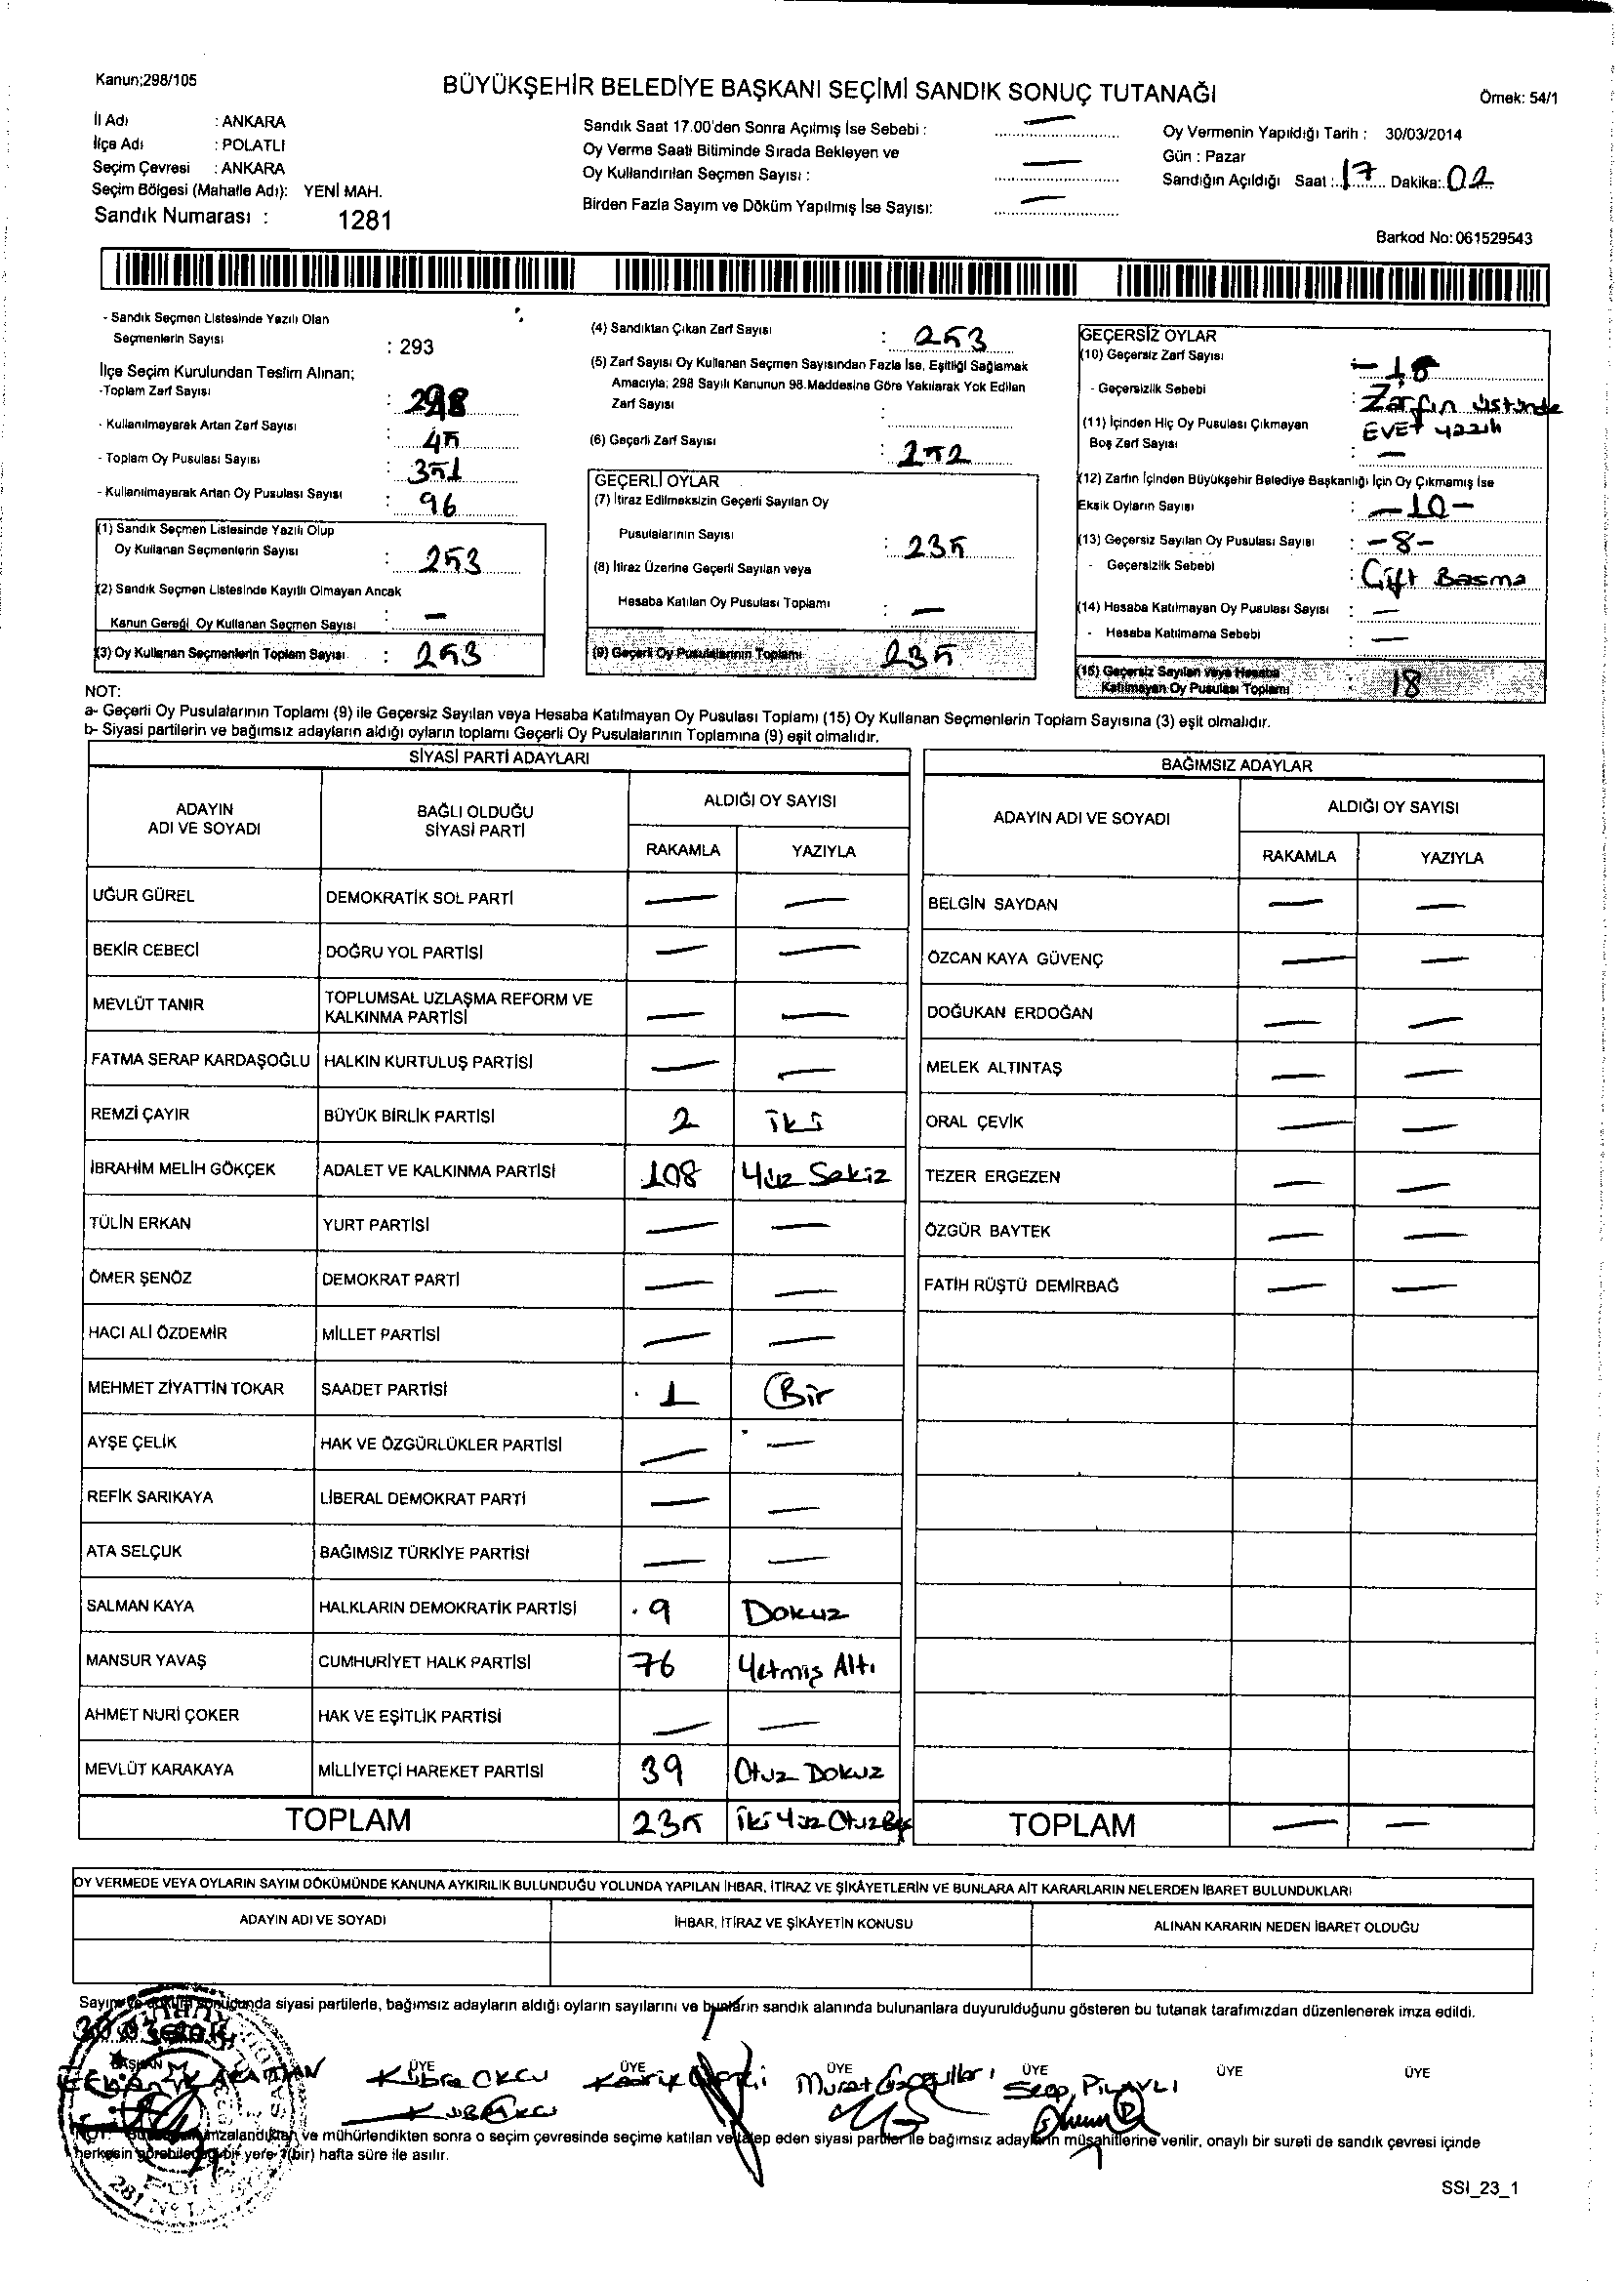 Kanun;298/105
BÜYÜKŞEHİR BELEDİYE BAŞKANI SEÇİMİ SANDIK SONUÇ TUTANAĞI
Örnek: 54/1
İl Adı : ANKARA
İlçe Adı : POLATLI
Seçim Çevresi : ANKARA
Seçim Bölgesi (Mahalle Adı): YENİ MAH.
Sandık Numarası : 1281
Sandık Saat 17.00'den Sonra Açılmış İse Sebebi : —
Oy Verme Saati Bitiminde Sırada Bekleyen ve
Oy Kullandırılan Seçmen Sayısı : —
Birden Fazla Sayım ve Döküm Yapılmış İse Sayısı: —
Oy Vermenin Yapıldığı Tarih : 30/03/2014
Gün : Pazar
Sandığın Açıldığı Saat : 17 Dakika: 02
Barkod No: 061529543
- Sandık Seçmen Listesinde Yazılı Olan
Seçmenlerin Sayısı : 293
İlçe Seçim Kurulundan Teslim Alınan;
-Toplam Zarf Sayısı : 298
- Kullanılmayarak Artan Zarf Sayısı : 45
- Toplam Oy Pusulası Sayısı : 351
- Kullanılmayarak Artan Oy Pusulası Sayısı : 96
(1) Sandık Seçmen Listesinde Yazılı Olup
Oy Kullanan Seçmenlerin Sayısı : 253
(2) Sandık Seçmen Listesinde Kayıtlı Olmayan Ancak
Kanun Gereği Oy Kullanan Seçmen Sayısı : —
(3) Oy Kullanan Seçmenlerin Toplam Sayısı : 253
(4) Sandıktan Çıkan Zarf Sayısı : 253
(5) Zarf Sayısı Oy Kullanan Seçmen Sayısından Fazla İse, Eşitliği Sağlamak
Amacıyla; 298 Sayılı Kanunun 98.Maddesine Göre Yakılarak Yok Edilen
Zarf Sayısı :
(6) Geçerli Zarf Sayısı : 252
GEÇERLİ OYLAR
(7) İtiraz Edilmeksizin Geçerli Sayılan Oy
Pusulalarının Sayısı : 235
(8) İtiraz Üzerine Geçerli Sayılan veya
Hesaba Katılan Oy Pusulası Toplamı : —
(9) Geçerli Oy Pusulalarının Toplamı 235
GEÇERSİZ OYLAR
(10) Geçersiz Zarf Sayısı
- Geçersizlik Sebebi : Zarfın üstünde
EVET yazılı
(11) İçinden Hiç Oy Pusulası Çıkmayan
Boş Zarf Sayısı : —
(12) Zarfın İçinden Büyükşehir Belediye Başkanlığı İçin Oy Çıkmamış İse
Eksik Oyların Sayısı : -10-
(13) Geçersiz Sayılan Oy Pusulası Sayısı : -8-
- Geçersizlik Sebebi : Çift Basma
(14) Hesaba Katılmayan Oy Pusulası Sayısı : —
- Hesaba Katılmama Sebebi : —
(15) Geçersiz Sayılan veya Hesaba
Katılmayan Oy Pusulası Toplamı : 18
NOT:
a- Geçerli Oy Pusulalarının Toplamı (9) ile Geçersiz Sayılan veya Hesaba Katılmayan Oy Pusulası Toplamı (15) Oy Kullanan Seçmenlerin Toplam Sayısına (3) eşit olmalıdır.
b- Siyasi partilerin ve bağımsız adayların aldığı oyların toplamı Geçerli Oy Pusulalarının Toplamına (9) eşit olmalıdır.
SİYASİ PARTİ ADAYLARI
ADAYIN ADI VE SOYADI
BAĞLI OLDUĞU SİYASİ PARTİ
ALDIĞI OY SAYISI
RAKAMLA YAZIYLA
UĞUR GÜREL DEMOKRATİK SOL PARTİ — —
BEKİR CEBECİ DOĞRU YOL PARTİSİ — —
MEVLÜT TANIR TOPLUMSAL UZLAŞMA REFORM VE KALKINMA PARTİSİ — —
FATMA SERAP KARDAŞOĞLU HALKIN KURTULUŞ PARTİSİ — —
REMZİ ÇAYIR BÜYÜK BİRLİK PARTİSİ 2 iki
İBRAHİM MELİH GÖKÇEK ADALET VE KALKINMA PARTİSİ 108 Yüz Sekiz
TÜLİN ERKAN YURT PARTİSİ — —
ÖMER ŞENÖZ DEMOKRAT PARTİ — —
HACI ALİ ÖZDEMİR MİLLET PARTİSİ — —
MEHMET ZİYATTİN TOKAR SAADET PARTİSİ 1 Bir
AYŞE ÇELİK HAK VE ÖZGÜRLÜKLER PARTİSİ — —
REFİK SARIKAYA LİBERAL DEMOKRAT PARTİ — —
ATA SELÇUK BAĞIMSIZ TÜRKİYE PARTİSİ — —
SALMAN KAYA HALKLARIN DEMOKRATİK PARTİSİ 9 Dokuz
MANSUR YAVAŞ CUMHURİYET HALK PARTİSİ 76 Yetmiş Altı
AHMET NURİ ÇOKER HAK VE EŞİTLİK PARTİSİ — —
MEVLÜT KARAKAYA MİLLİYETÇİ HAREKET PARTİSİ 39 Otuz Dokuz
TOPLAM 235 İki Yüz Otuz Beş
BAĞIMSIZ ADAYLAR
ADAYIN ADI VE SOYADI
ALDIĞI OY SAYISI
RAKAMLA YAZIYLA
BELGİN SAYDAN — —
ÖZCAN KAYA GÜVENÇ — —
DOĞUKAN ERDOĞAN — —
MELEK ALTINTAŞ — —
ORAL ÇEVİK — —
TEZER ERGEZEN — —
ÖZGÜR BAYTEK — —
FATİH RÜŞTÜ DEMİRBAĞ — —
TOPLAM — —
OY VERMEDE VEYA OYLARIN SAYIM DÖKÜMÜNDE KANUNA AYKIRILIK BULUNDUĞU YOLUNDA YAPILAN İHBAR, İTİRAZ VE ŞİKÂYETLERİN VE BUNLARA AİT KARARLARIN NELERDEN İBARET BULUNDUKLARI
ADAYIN ADI VE SOYADI İHBAR, İTİRAZ VE ŞİKÂYETİN KONUSU ALINAN KARARIN NEDEN İBARET OLDUĞU
Sayım ve döküm sonucunda siyasi partilerle, bağımsız adayların aldığı oyların sayılarını ve bunların sandık alanında bulunanlara duyurulduğunu gösteren bu tutanak tarafımızdan düzenlenerek imza edildi.
BAŞKAN ÜYE ÜYE ÜYE ÜYE ÜYE ÜYE
Kübra OKCU Murat PİLAVLI
NOT: imzalandıktan ve mühürlendikten sonra o seçim çevresinde seçime katılan ve talep eden siyasi partiler ile bağımsız adayların müşahitlerine verilir, onaylı bir sureti de sandık çevresi içinde
herkesin görebileceği bir yere 7(bir) hafta süre ile asılır.
SSI_23_1